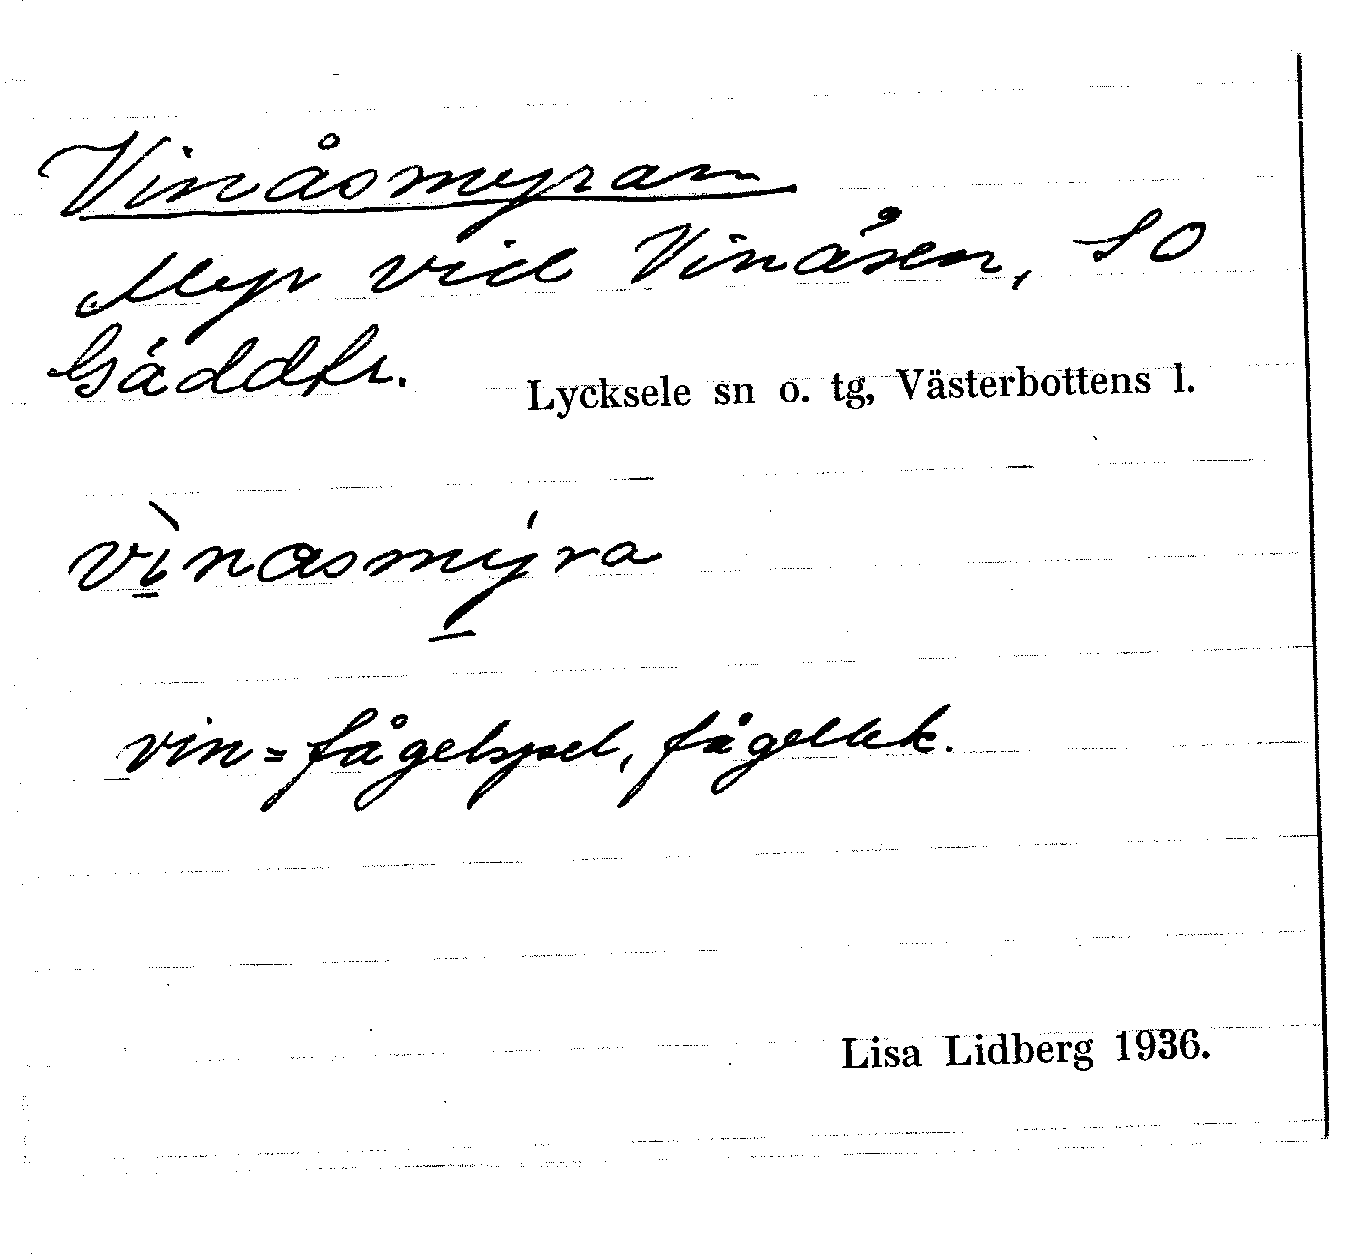 Vinåsmyran
Myr vid Vinåsen, SO
Gäddtr. Lycksele sn o. tg, Västerbottens l.
vìnasmýra
vin = fågelspel, fågellek.
Lisa Lidberg 1936.